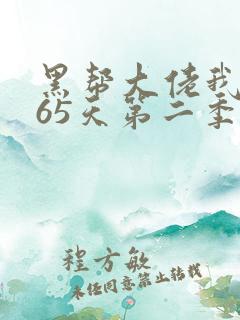 黑帮大佬我
65天第二季
程方敏
未经同意禁止转载